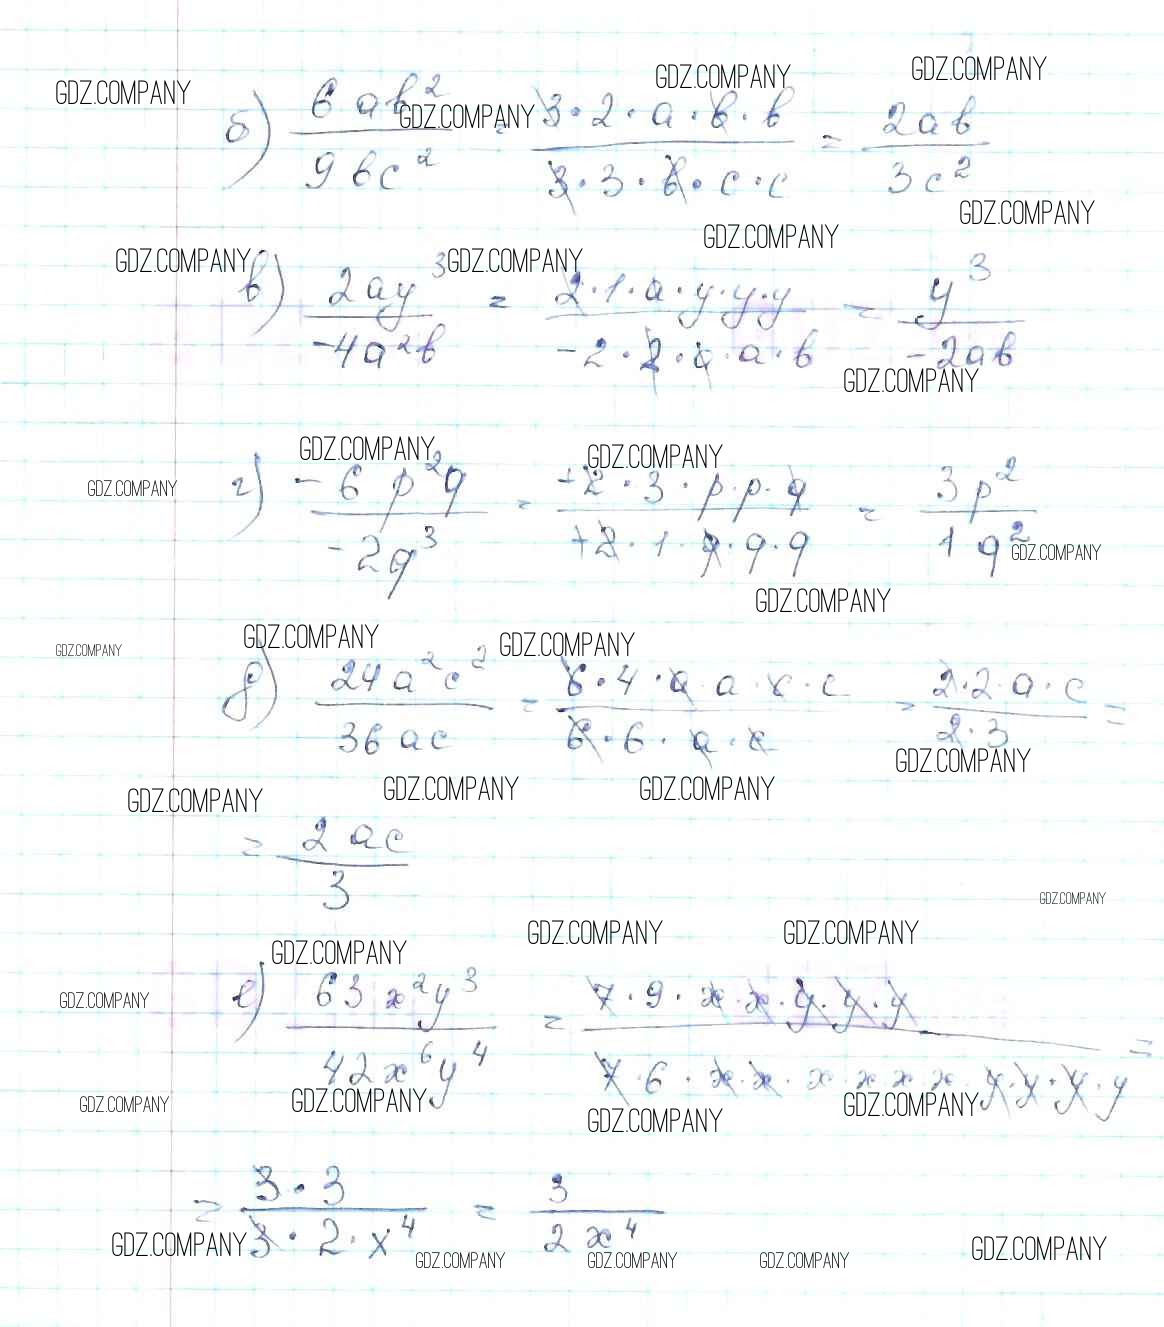 GDZ.COMPANY GDZ.COMPANY GDZ.COMPANY
б) 6ab²/9bc² = 3·2·a·b·b/3·3·b·c·c = 2ab/3c²
GDZ.COMPANY
GDZ.COMPANY GDZ.COMPANY
GDZ.COMPANY GDZ.COMPANY
в) 2ay³/-4a²b = 2·1·a·y·y·y/-2·2·a·a·b = y³/-2ab
GDZ.COMPANY
GDZ.COMPANY GDZ.COMPANY
GDZ.COMPANY
г) -6p²q/-2q³ = +2·3·p·p·q/+2·1·q·q·q = 3p²/1q²
GDZ.COMPANY
GDZ.COMPANY
GDZ.COMPANY GDZ.COMPANY GDZ.COMPANY
д) 24a²c²/36ac = 6·4·a·a·c·c/6·6·a·c = 2·2·a·c/2·3 =
GDZ.COMPANY
GDZ.COMPANY GDZ.COMPANY GDZ.COMPANY
= 2ac/3
GDZ.COMPANY
GDZ.COMPANY GDZ.COMPANY GDZ.COMPANY
GDZ.COMPANY
е) 63x²y³/42x⁶y⁴ = 7·9·x·x·y·y·y/7·6·x·x·x·x·x·x·y·y·y·y =
GDZ.COMPANY GDZ.COMPANY GDZ.COMPANY GDZ.COMPANY
= 3·3/3·2·x⁴ = 3/2x⁴
GDZ.COMPANY GDZ.COMPANY GDZ.COMPANY GDZ.COMPANY GDZ.COMPANY